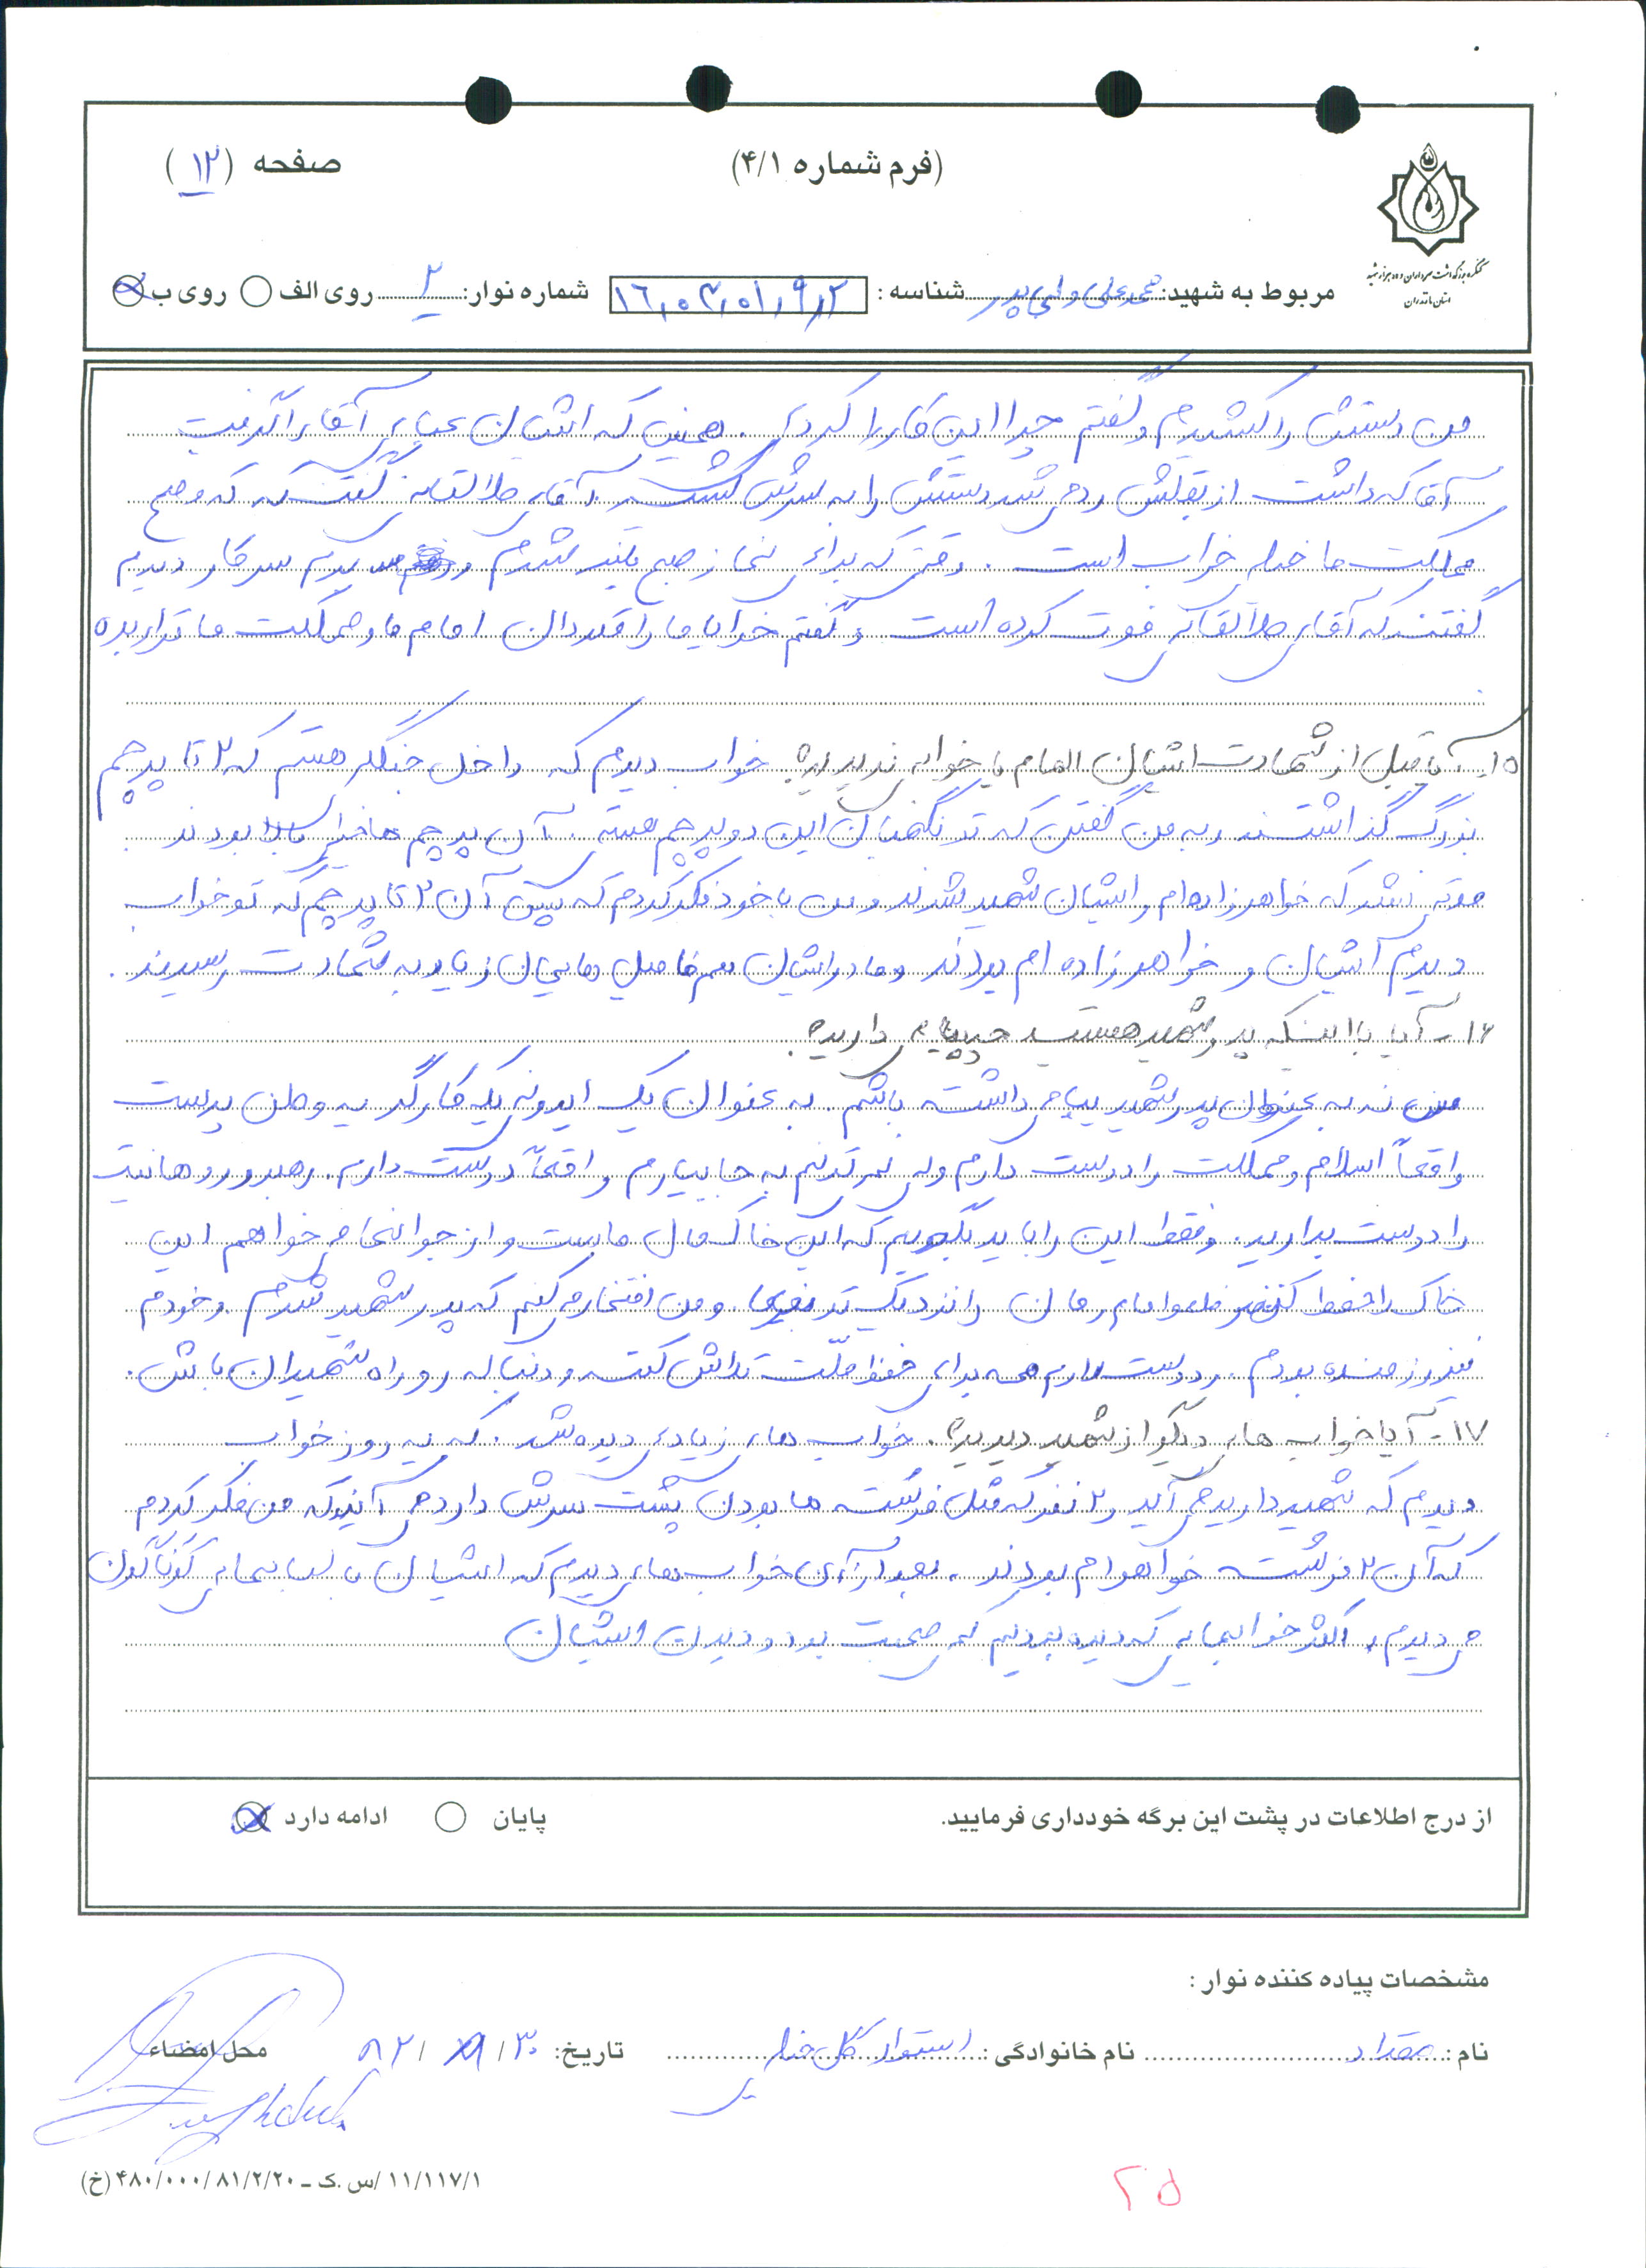 صفحه (۱۲)
(فرم شماره ۴/۱)
کنگره بزرگداشت سرداران و ده هزار شهید
استان مازندران
مربوط به شهید: محمدعلی ولی پور شناسه: ۱۶,۰۳,۰۱,۹,۲ شماره نوار: ۲ روی الف روی ب
من دستش را کشیدم و گفتم چرا این کار را کردی. همین که ایشان عبای آقا را گرفت
آقا که داشت از بغلش رد می شد دستش را به سرش کشید آقای طالقانی گفت که وضع
مملکت ما خیلی خراب است. وقتی که برای نماز صبح بلند شدم و رفتم سر کار دیدم
گفتند که آقای طالقانی فوت کرده است و گفتم خدایا ما را قدردان امام ما و مملکت ما قرار بده
۱۵- آیا قبل از شهادت ایشان الهام یا خوابی ندیدید؟ خواب دیدم که داخل جنگلم هستم که ۲ تا پرچم
بزرگ گذاشتند و به من گفتن که تو نگهبان این دو پرچم هستی. آن پرچم ها خیلی بالا بودند
موقعی نشد که خواهرزاده ام و ایشان شهید شدند و من با خود فکر کردم که پس آن ۲ تا پرچم که تو خواب
دیدم ایشان و خواهر زاده ام بودند و مادر ایشان هم فامیل هایمان زیاد به شهادت رسیدند.
۱۶- آیا با اینکه پدر شهید هستید چه پیامی دارید؟
من نه به عنوان پدر شهید پیامی داشته باشم. به عنوان یک ایرونی یک کارگر یه وطن پرست
واقعاً اسلام و مملکت را دوست دارم ولی نمی تونم به جا بیارم واقعاً دوست دارم. رهبر و روحانیت
را دوست بدارید. و فقط این را باید بگویم که این خاک مال ماست و از جوانها می خواهم این
خاک را حفظ کنند و امام زمان را نزدیک تر و من افتخار می کنم که پدر شهید شدم و خودم
نیز رزمنده بودم. و دوست دارم همه برای حفظ ملّت تلاش کنند و دنباله رو راه شهیدان باش.
۱۷- آیا خواب های دیگر از شهید دیدید؟. خواب های زیادی دیده شد. که یه روز خواب
دیدم که شهید دارید می آید و ۲ نفر که مثل فرشته ها بودن پشت سرش دارد می آیند که من فکر کردم
که آن ۲ فرشته خواهرام بودند. بعد از آن خواب های دیدم که ایشان با لباسهای گوناگون
می دیدم، اکثر خوابهایی که دیده بودیم که صحبت بود و دیدن ایشان
از درج اطلاعات در پشت این برگه خودداری فرمایید. پایان ادامه دارد
مشخصات پیاده کننده نوار:
نام: مقداد نام خانوادگی: استوار تاریخ: ۳۰/ /۸۲ محل امضاء
۱۱/۱۱۷/۱ /س.ک - ۴۸۰/۰۰۰/۸۱/۲/۲۰ (خ)
۲۵